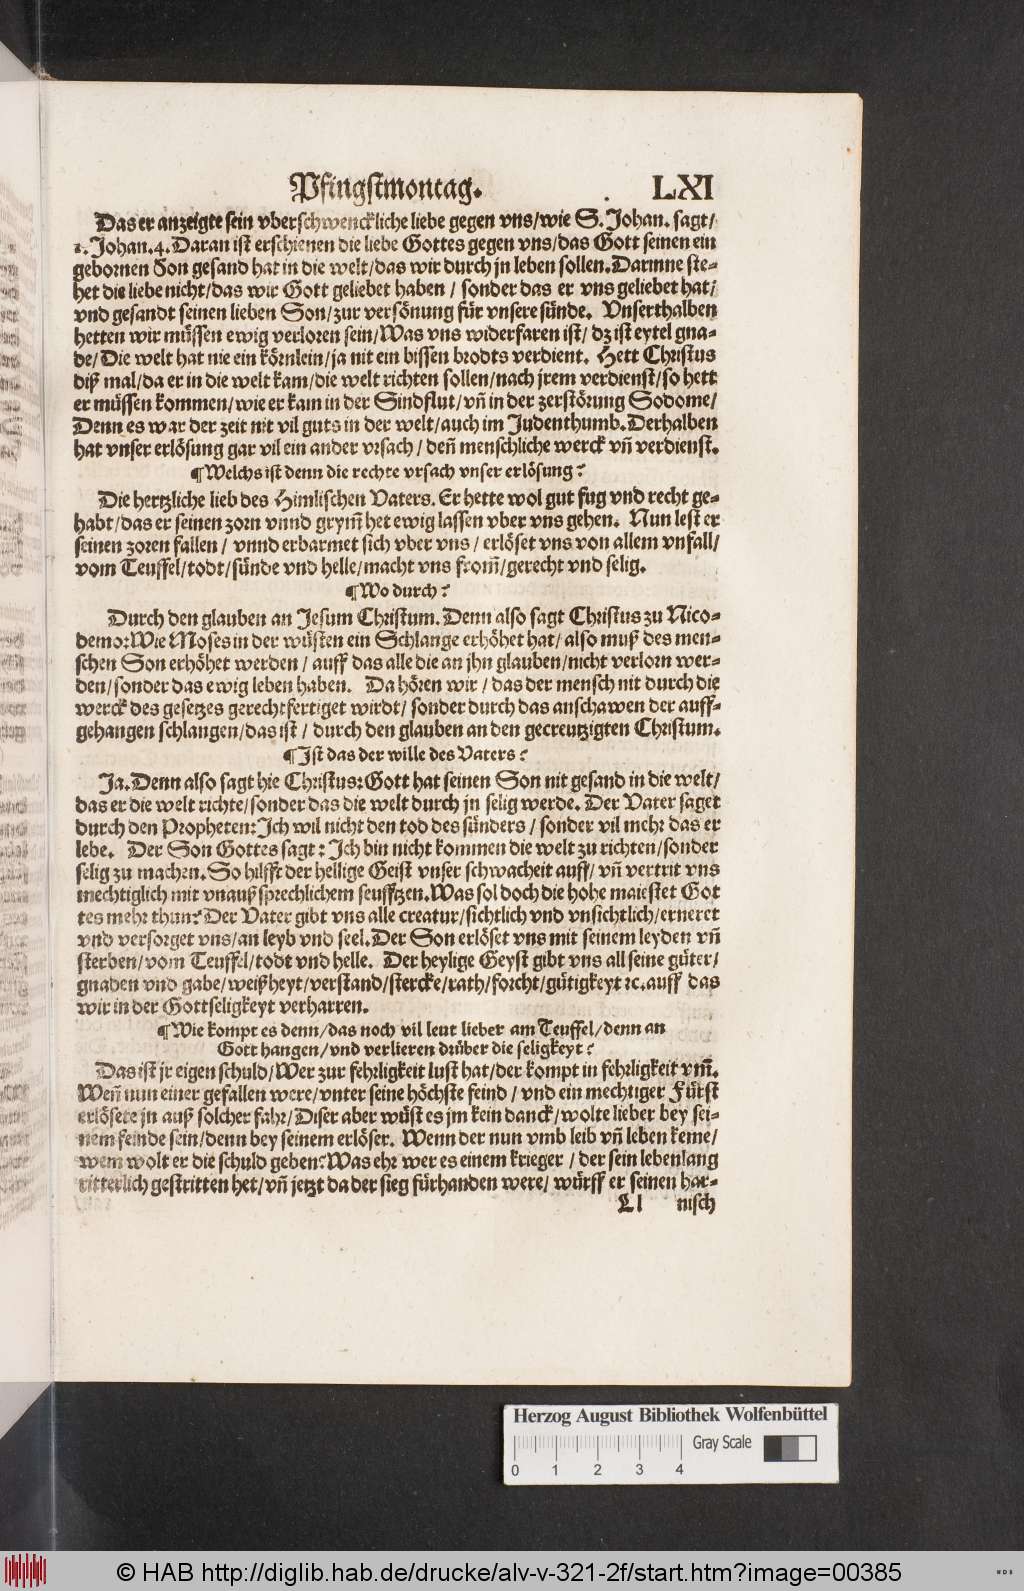 Pfingſtmontag. LXI
Das er anzeigte ſein vberſchwenckliche liebe gegen vns/wie S. Johan. ſagt/
1. Johan. 4. Daran iſt erſchienen die liebe Gottes gegen vns/das Gott ſeinen ein
gebornen Son geſand hat in die welt/das wir durch jn leben ſollen. Darinne ſte-
het die liebe nicht/das wir Gott geliebet haben / ſonder das er vns geliebet hat/
vnd geſandt ſeinen lieben Son/zur verſönung für vnſere ſünde. Vnſerthalben
hetten wir müſſen ewig verloren ſein/Was vns widerfaren iſt/ dz iſt eytel gna-
de/Die welt hat nie ein körnlein/ja nit ein biſſen brodts verdient. Hett Chriſtus
diß mal/da er in die welt kam/die welt richten ſollen/nach jrem verdienſt/ſo hett
er müſſen kommen/wie er kam in der Sindflut/vñ in der zerſtörung Sodome/
Denn es war der zeit nit vil guts in der welt/auch im Judenthumb. Derhalben
hat vnſer erlöſung gar vil ein ander vrſach/ deñ menſchliche werck vñ verdienſt.
¶ Welchs iſt denn die rechte vrſach vnſer erlöſung?
Die hertzliche lieb des Himliſchen Vaters. Er hette wol gut fug vnd recht ge-
habt/das er ſeinen zorn vnnd grym̃ het ewig laſſen vber vns gehen. Nun leſt er
ſeinen zoren fallen / vnnd erbarmet ſich vber vns / erlöſet vns von allem vnfall/
vom Teuffel/todt/ſünde vnd helle/macht vns from̃/gerecht vnd ſelig.
¶ Wo durch?
Durch den glauben an Jeſum Chriſtum. Denn alſo ſagt Chriſtus zu Nico-
demo: Wie Moſes in der wüſten ein Schlange erhöhet hat/alſo muß des men-
ſchen Son erhöhet werden / auff das alle die an jhn glauben/nicht verlorn wer-
den/ſonder das ewig leben haben. Da hören wir / das der menſch nit durch die
werck des geſetzes gerechtfertiget wirdt/ ſonder durch das anſchawen der auff-
gehangen ſchlangen/das iſt / durch den glauben an den gecreutzigten Chriſtum.
¶ Iſt das der wille des Vaters?
Ja. Denn alſo ſagt hie Chriſtus: Gott hat ſeinen Son nit geſand in die welt/
das er die welt richte/ſonder das die welt durch jn ſelig werde. Der Vater ſaget
durch den Propheten: Ich wil nicht den tod des ſünders / ſonder vil mehr das er
lebe. Der Son Gottes ſagt: Ich bin nicht kommen die welt zu richten/ſonder
ſelig zu machen. So hilfft der heilige Geiſt vnſer ſchwacheit auff/ vñ vertrit vns
mechtiglich mit vnaußſprechlichem ſeufftzen. Was ſol doch die hohe maieſtet Got
tes mehr thun? Der Vater gibt vns alle creatur/ſichtlich vnd vnſichtlich/erneret
vnd verſorget vns/an leyb vnd ſeel. Der Son erlöſet vns mit ſeinem leyden vñ
ſterben/vom Teuffel/todt vnd helle. Der heylige Geyſt gibt vns all ſeine güter/
gnaden vnd gabe/weißheyt/verſtand/ſtercke/rath/forcht/gütigkeyt ꝛc. auff das
wir in der Gottſeligkeyt verharren.
¶ Wie kompt es denn/das noch vil leut lieber am Teuffel/denn an
Gott hangen/vnd verlieren drüber die ſeligkeyt?
Das iſt jr eigen ſchuld/Wer zur fehrligkeit luſt hat/der kompt in fehrligkeit vm̃.
Weñ nun einer gefallen were/vnter ſeine höchſte feind / vnd ein mechtiger Fürſt
erlöſete jn auß ſolcher fahr/Diſer aber wüſt es jm kein danck/wolte lieber bey ſei-
nem feinde ſein/denn bey ſeinem erlöſer. Wenn der nun vmb leib vñ leben keme/
wem wolt er die ſchuld geben? Was ehr wer es einem krieger / der ſein lebenlang
ritterlich geſtritten het/vñ jetzt da der ſieg fürhanden were/ würff er ſeinen har-
Ll niſch
Herzog August Bibliothek Wolfenbüttel
Gray Scale
0 1 2 3 4
© HAB http://diglib.hab.de/drucke/alv-v-321-2f/start.htm?image=00385